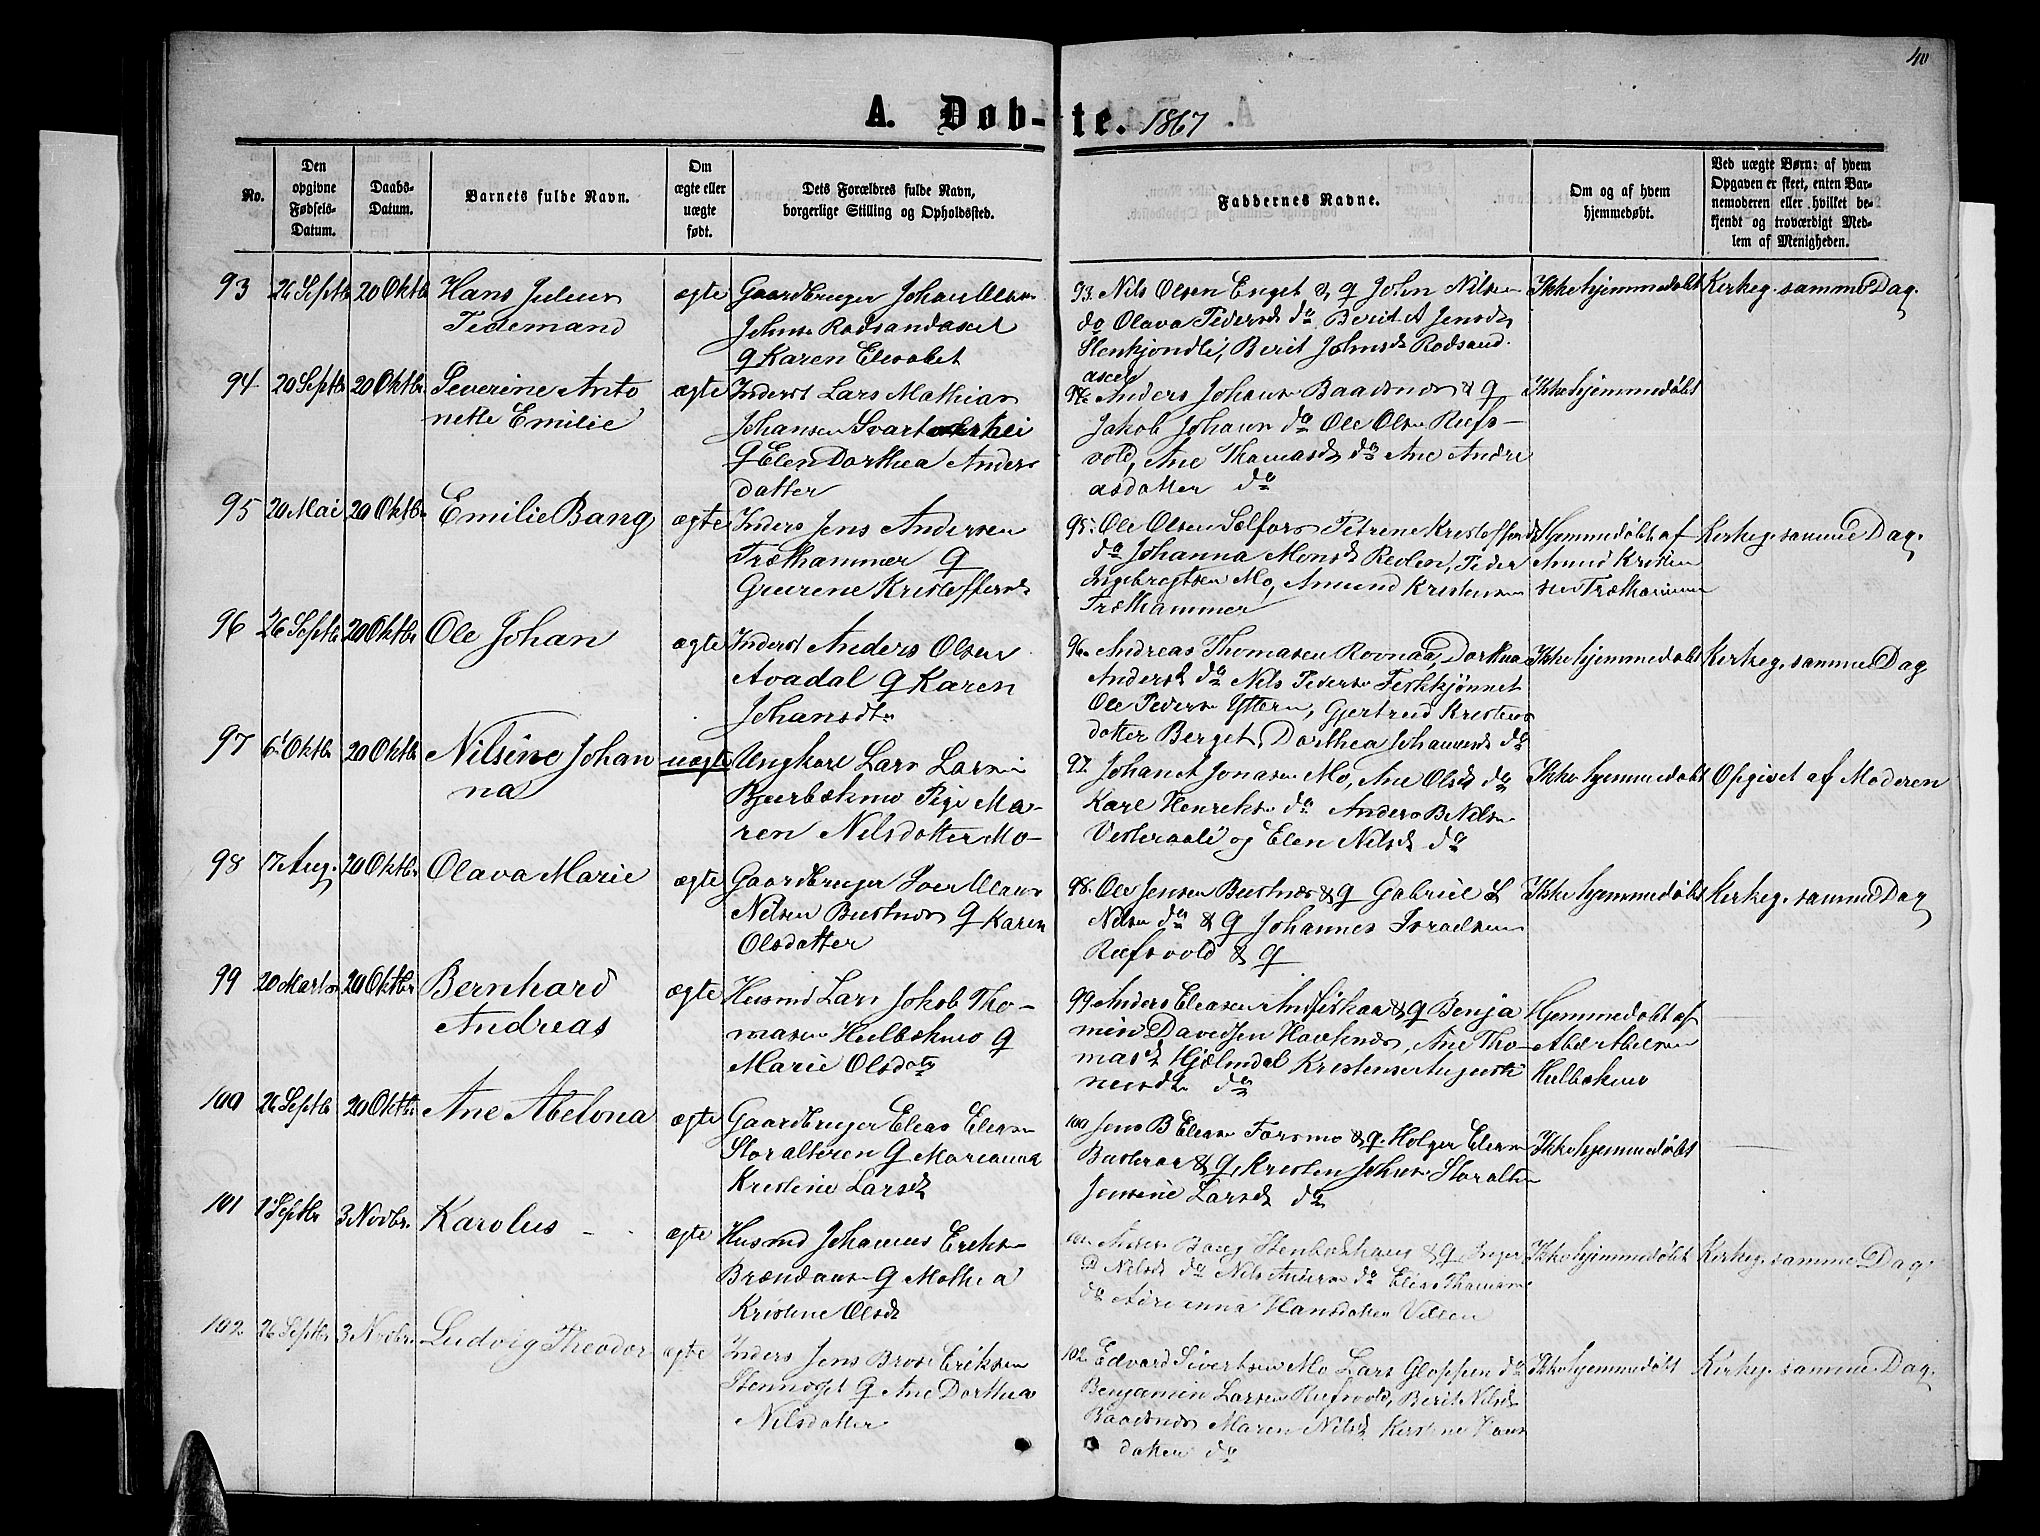 40
A. Døb-te. 1867
No.
Den opgivne Fødsels-Datum.
Daabs-Datum.
Barnets fulde Navn.
Om ægte eller uægte født.
Dets Forældres fulde Navn, borgerlige Stilling og Opholdssted.
Faddernes Navne.
Om og af hvem hjemmedøbt.
Ved uægte Børn: af hvem Opgaven er skeet, enten Barnemoderen eller hvilket bekjendt og troværdigt Medlem af Menigheden.
93 26 Septbr 20 Oktbr Hans Julius ægte Gaardbruger Johan
Tidemand
& Karen Elisabet
93. Nils Olsen Enget & & John Nilsen Ikke hjemmedøbt Kirkeg. samme Dag.
do Olava Pedersd do Berit A Jensd
Stenkjøndli, Berit Johnsd Rødsand
aasen
94 20 Septbr 20 Oktbr Severine Anto ægte Inderst Lars Mathias
nette Emilie Johansen Svart
& Elen Dorthea Anders
datter
94. Anders Johans Baadsnes & & Ikke hjemmedøbt
Jakob Johans do Ole Olsen Rufs-
vold, Ane Thomasd do Ane Andre
asdatter do
95 20 Mai 20 Oktbr Emilie Bang ægte Inders Jens Andersen
Trælhammer &
Kristoffersd
95. Ole Olsen Selfors Petrine Kristoffersd Hjemmedøbt af Kirkeg. samme Dag.
do Johanna Monsd Revlen, Peder Amund Kristen
Ingebregtsen Mo, Amund Kristensen sen Trælhammer
Trælhammer
96 26 Septbr 20 Oktbr Ole Johan ægte Inderst Anders Olsen
Avadal & Karen
Johansdtr
96. Andreas Thomasen Rovnaa, Dorthea Ikke hjemmedøbt Kirkeg. samme Dag
Andersd do Nils Peders Fiskkjønnet
Ole Peders Yttern, Gjertrud Kristens
datter Berget, Dorthea Johannesd do
97 6 Oktbr 20 Oktbr Nilsine Johan uægte Ungkarl Lars Larsen
na Bjerbækmo Pige Ma-
ren Nilsdatter Mo-
97. Johan A Jonasen Mo, Ane Olsd do Ikke hjemmedøbt Opgivet af Moderen
Karl Henriks do Anders B Nilsen
Vesteraali og Elen Nilsd do
98 17 Aug. 20 Oktbr Olava Marie ægte Gaardbruger
Nilsen Bustnes & Karen
Olsdatter
98. Ole Jensen Bustnes & & Gabriel L Ikke hjemmedøbt Kirkeg. samme Dag
Nilsen do & & Johannes Israelsen
Rufsvold & &
99 20 Marts 20 Oktbr Bernhard ægte Husmd Lars Jakob Tho-
Andreas masen Hulbækmo &
Marie Olsdatr
99. Anders Eliasen & & Benja Hjemmedøbt af
min Davidsen Hauknes, Ane Tho- Abel Abelsen
masd Hjelmdal Kristense Augusti Hulbækmo
nusdtr do
100 26 Septbr 20 Oktbr Ane Abelona ægte Gaardbruger Elias Eliasen
Storalteren & Marianna
Kristine Larsd
100 Jens B Eliasen Forsmo & & Holger Eliasen Ikke hjemmedøbt
& & Kristen Johns Storalte
Jensine Larsd do
101 1 Septbr 3 Novbr. Karolus - ægte Husmd Johannes Eriksen
Brændaasen & Mathea
Kristine Olsd
101. Anders Baug Stenbækhaug & & Inger Ikke hjemmedøbt Kirkeg. samme Dag.
Nilsd do Nils Anders do Elise Thomas
do Adrianna Hansdatter Vilsen
102 26 Septbr 3 Novbr. Ludvig Theodor ægte Inders Jens Brose Eriksen
& Ane Dorthea
Nilsdatter
102. Edvard Sivertsen Mo Lars Gloppen do Ikke hjemmedøbt Kirkeg. samme Dag.
Benjamin Larsen Rufsvold, Berit Nilsd
Baadsnes Maren Nilsd Kirstine Hans
datter do